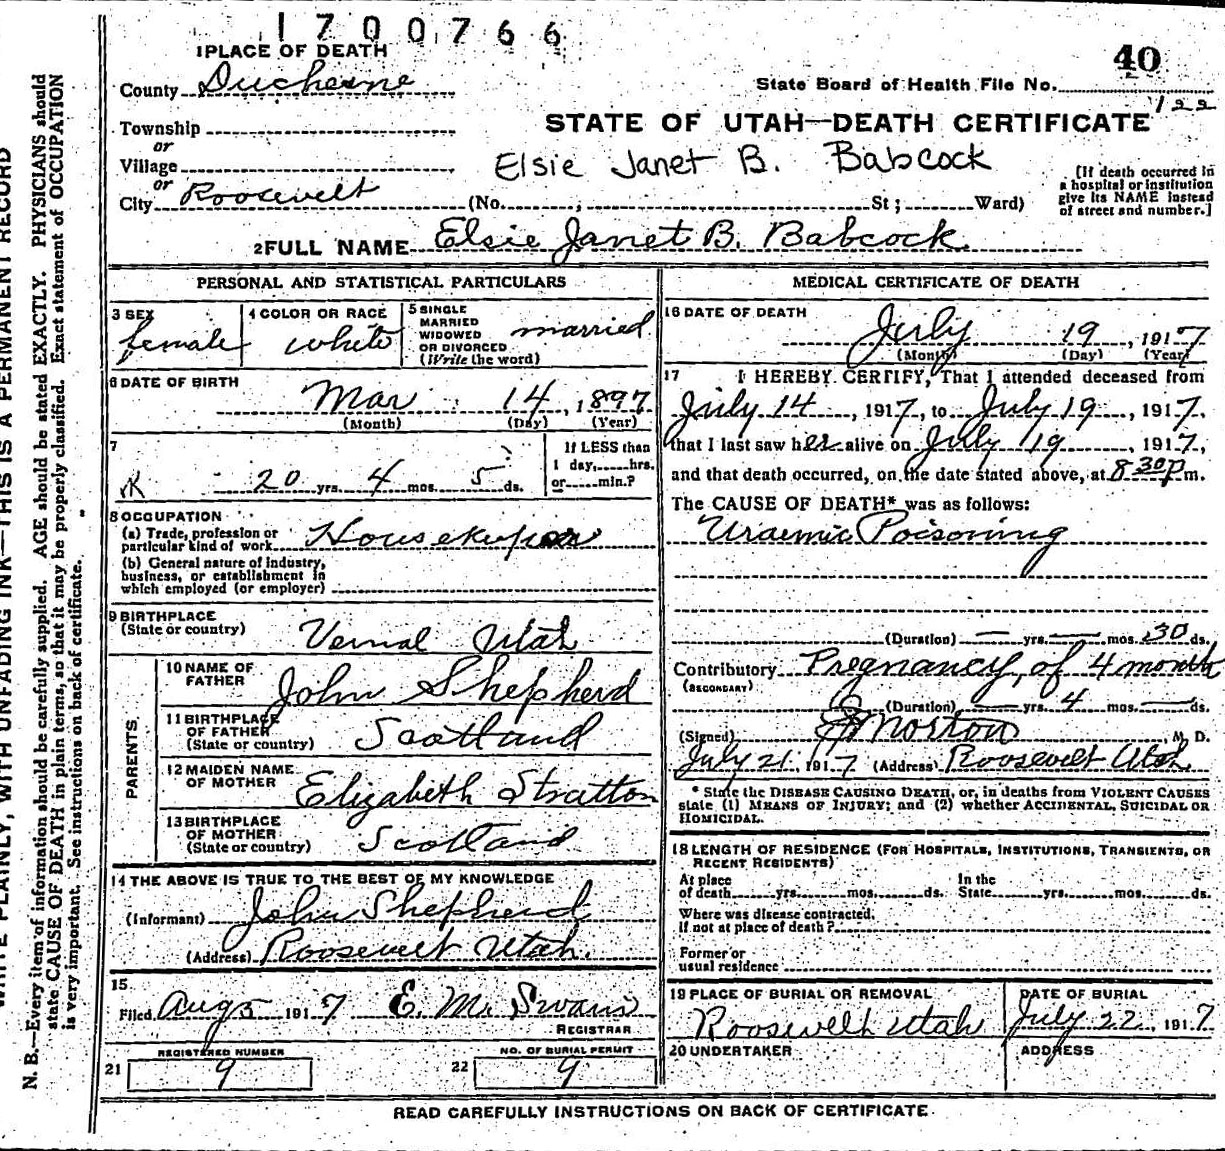 1700766
40
1 PLACE OF DEATH
County Duchesne
State Board of Health File No.
122
Township
or
STATE OF UTAH—DEATH CERTIFICATE
Village
or
Elsie Janet B. Babcock
City Roosevelt (No. ; St ; Ward)
[If death occurred in
a hospital or institution
give its NAME instead
of street and number.]
2 FULL NAME Elsie Janet B. Babcock
PERSONAL AND STATISTICAL PARTICULARS
3 SEX
female
4 COLOR OR RACE
white
5 SINGLE
MARRIED
WIDOWED
OR DIVORCED
(Write the word)
married
6 DATE OF BIRTH
Mar 14, 1897
(Month) (Day) (Year)
7
20 yrs. 4 mos. 5 ds.
If LESS than
1 day, hrs.
or min.?
8 OCCUPATION
(a) Trade, profession or
particular kind of work Housekeeper
(b) General nature of industry,
business, or establishment in
which employed (or employer)
9 BIRTHPLACE
(State or country) Vernal Utah
PARENTS
10 NAME OF
FATHER John Shepherd
11 BIRTHPLACE
OF FATHER
(State or country) Scotland
12 MAIDEN NAME
OF MOTHER Elizabeth Stratton
13 BIRTHPLACE
OF MOTHER
(State or country) Scotland
14 THE ABOVE IS TRUE TO THE BEST OF MY KNOWLEDGE
(Informant) John Shepherd
(Address) Roosevelt Utah.
15
Filed Aug 5 1917 E. M. Swain
REGISTRAR
21 REGISTERED NUMBER
9
22 NO. OF BURIAL PERMIT
9
MEDICAL CERTIFICATE OF DEATH
16 DATE OF DEATH
July 19, 1917
(Month) (Day) (Year)
17 I HEREBY CERTIFY, That I attended deceased from
July 14, 1917, to July 19, 1917,
that I last saw her alive on July 19, 1917,
and that death occurred, on the date stated above, at 8 30 P m.
The CAUSE OF DEATH* was as follows:
Uraemic Poisoning
(Duration) — yrs. — mos. 30 ds.
Contributory Pregnancy, of 4 month
(SECONDARY)
(Duration) — yrs. 4 mos. — ds.
(Signed) Morton M. D.
July 21, 1917 (Address) Roosevelt Utah
* State the DISEASE CAUSING DEATH, or, in deaths from VIOLENT CAUSES
state (1) MEANS OF INJURY; and (2) whether ACCIDENTAL, SUICIDAL OR
HOMICIDAL.
18 LENGTH OF RESIDENCE (FOR HOSPITALS, INSTITUTIONS, TRANSIENTS, OR
RECENT RESIDENTS)
At place
of death yrs. mos. ds.
In the
State yrs. mos. ds.
Where was disease contracted,
If not at place of death?
Former or
usual residence
19 PLACE OF BURIAL OR REMOVAL
Roosevelt Utah
DATE OF BURIAL
July 22, 1917
20 UNDERTAKER
ADDRESS
READ CAREFULLY INSTRUCTIONS ON BACK OF CERTIFICATE.
PLAINLY, WITH UNFADING INK—THIS IS A PERMANENT RECORD
N. B.—Every item of information should be carefully supplied. AGE should be stated EXACTLY. PHYSICIANS should
state CAUSE OF DEATH in plain terms, so that it may be properly classified. Exact statement of OCCUPATION
is very important. See instructions on back of certificate.